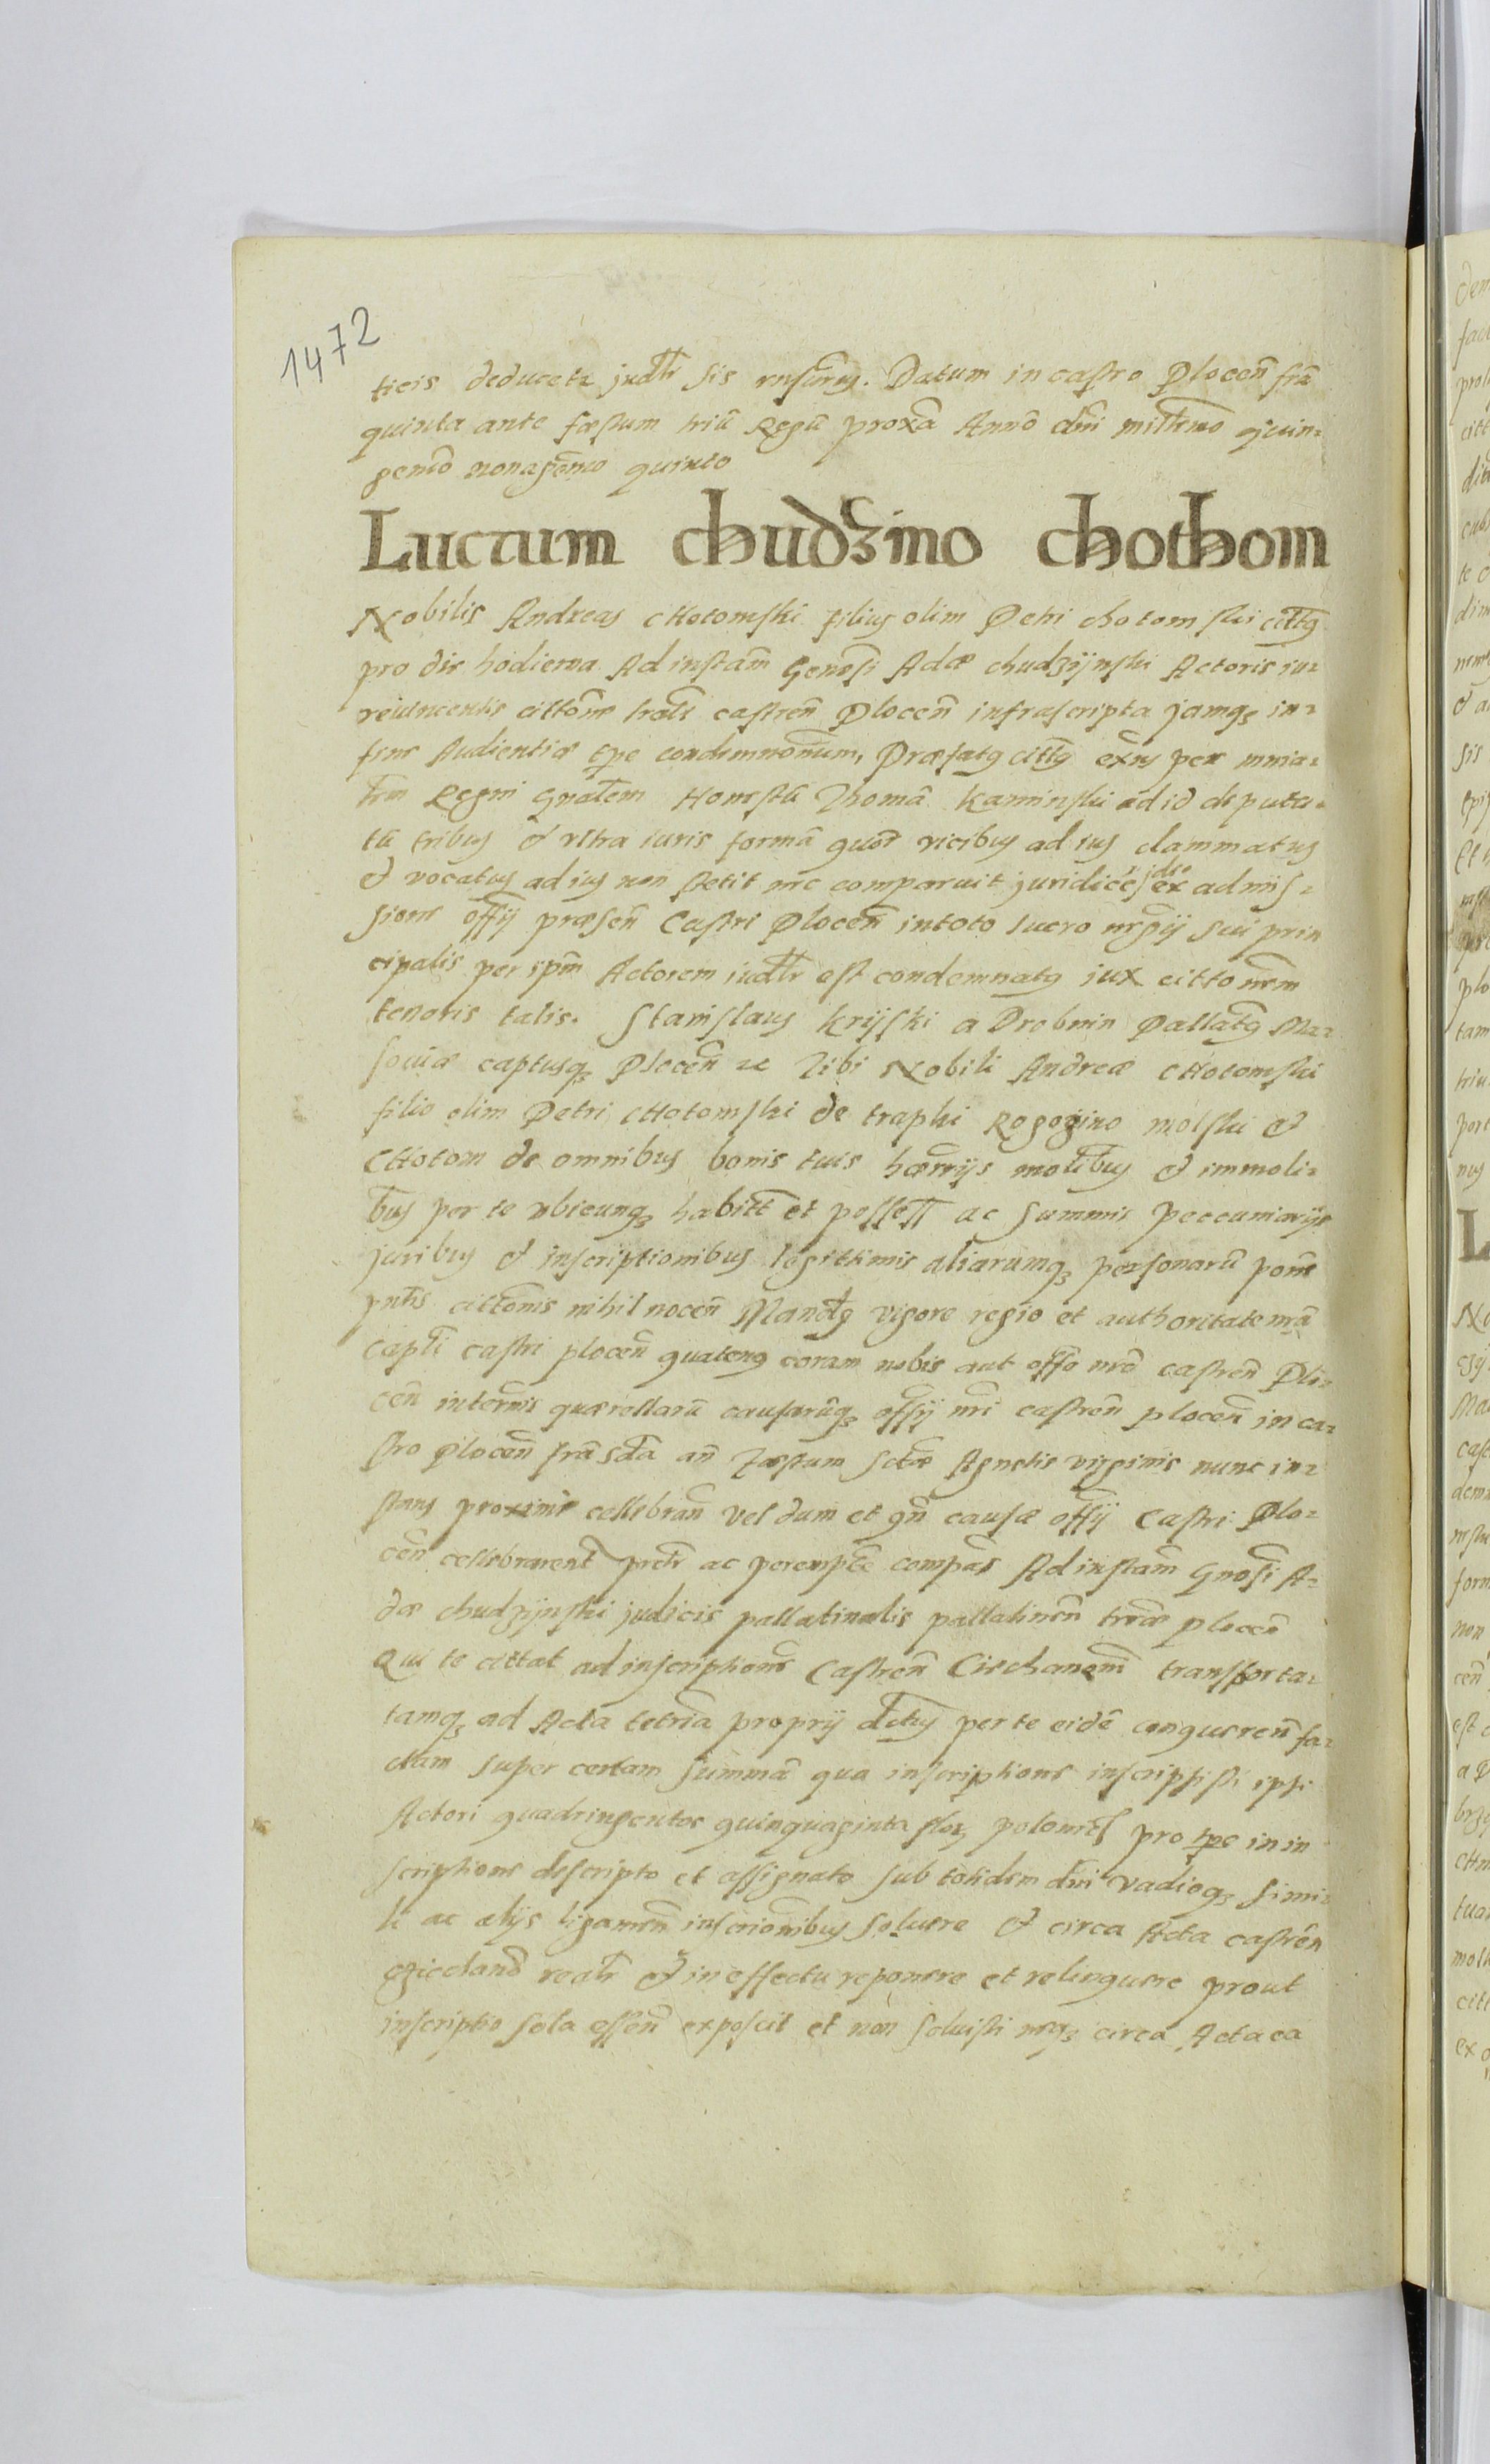 1472
ticis deducetr judtr sis rnsurus. Datum in castro Plocen̄ fra
quinta ante fæstum triū Regū proxa Anno dni millmo quin=
gento nonagemo quinto
Luctum chudzino chothom
Nobilis Andreas cHotomski filius olim Petri chotomski cittg
pro die hodierna Ad instam Genosi Adæ chudzijnski Actoris in=
reiuncentis cittone tralr castren̄ Plocen̄ infrascripta jamqz in=
fine Audientiæ tpe condemnonum, Præfatg cittg exns per mnia=
trm Regni Gnalem Honestū Thomā Kaminski ad id deputa=
tū tribus & vltra iuris formā quor vicibus ad ius clammatus
& vocatus ad ius non stetit nec comparuit juridice ideo ex admis=
sione offij præsen̄ Castri Plocen̄ in toto lucro nrgij sui prin
cipalis per ipm Actorem iudtr est condemnatg iux cittonem
tenoris talis. Stanislaus Krijski a Drobnin Pallatg Ma=
soviæ captusqz Plocen̄ zc Tibi Nobili Andreæ cHotomski
filio olim Petri cHotomski de trapki Rogozino molski &
cHotom de omnibus bonis tuis hærrijs molibus & immoli=
bus per te vbicunqz habitt et possess ac summis peccuniarijs
juribus & inscriptionibus legittimis aliarumqz personarū pone
pntis cittonis nihil nocen̄ Mandtg vigore regio et authoritate nrā
Captli castri plocen̄ quateng coram nobis aut offo nro castren̄ Plo=
cen̄ intermis quærellarū causarūqz offij nri castren̄ plocen̄ in ca=
stro Plocen̄ fra sda an̄ fæstum sctæ Agnetis virginis nunc in=
stans proxime cellebran̄ vel dum et qn̄ causæ offij Castri Plo=
cen̄ cellebrarent pretr ac perempte compas Ad instam Gnosi A=
dæ chudzijnski judicis pallatinalis pallatinen̄ træ plocen̄
Qui te cittat ad inscriptione Castren̄ Ciechanem transporta=
tamqz ad Acta tetria proprij dctus per te eidē conqueren̄ fa=
ctam super certam summā qua inscriptione inscripsisti ipsi
Actori quadringentos quinquaginta flor polonicl pro tpe in in
scriptione descripto et assignato sub totidem dni vadioqz simi=
li ac alijs ligamen̄ inscrionibus soluere & circa Acta castren̄
cziecland realr & in effectu reponere et relinquere prout
inscriptio sola essen̄ exposcit et non soluisti neqz circa Acta ea